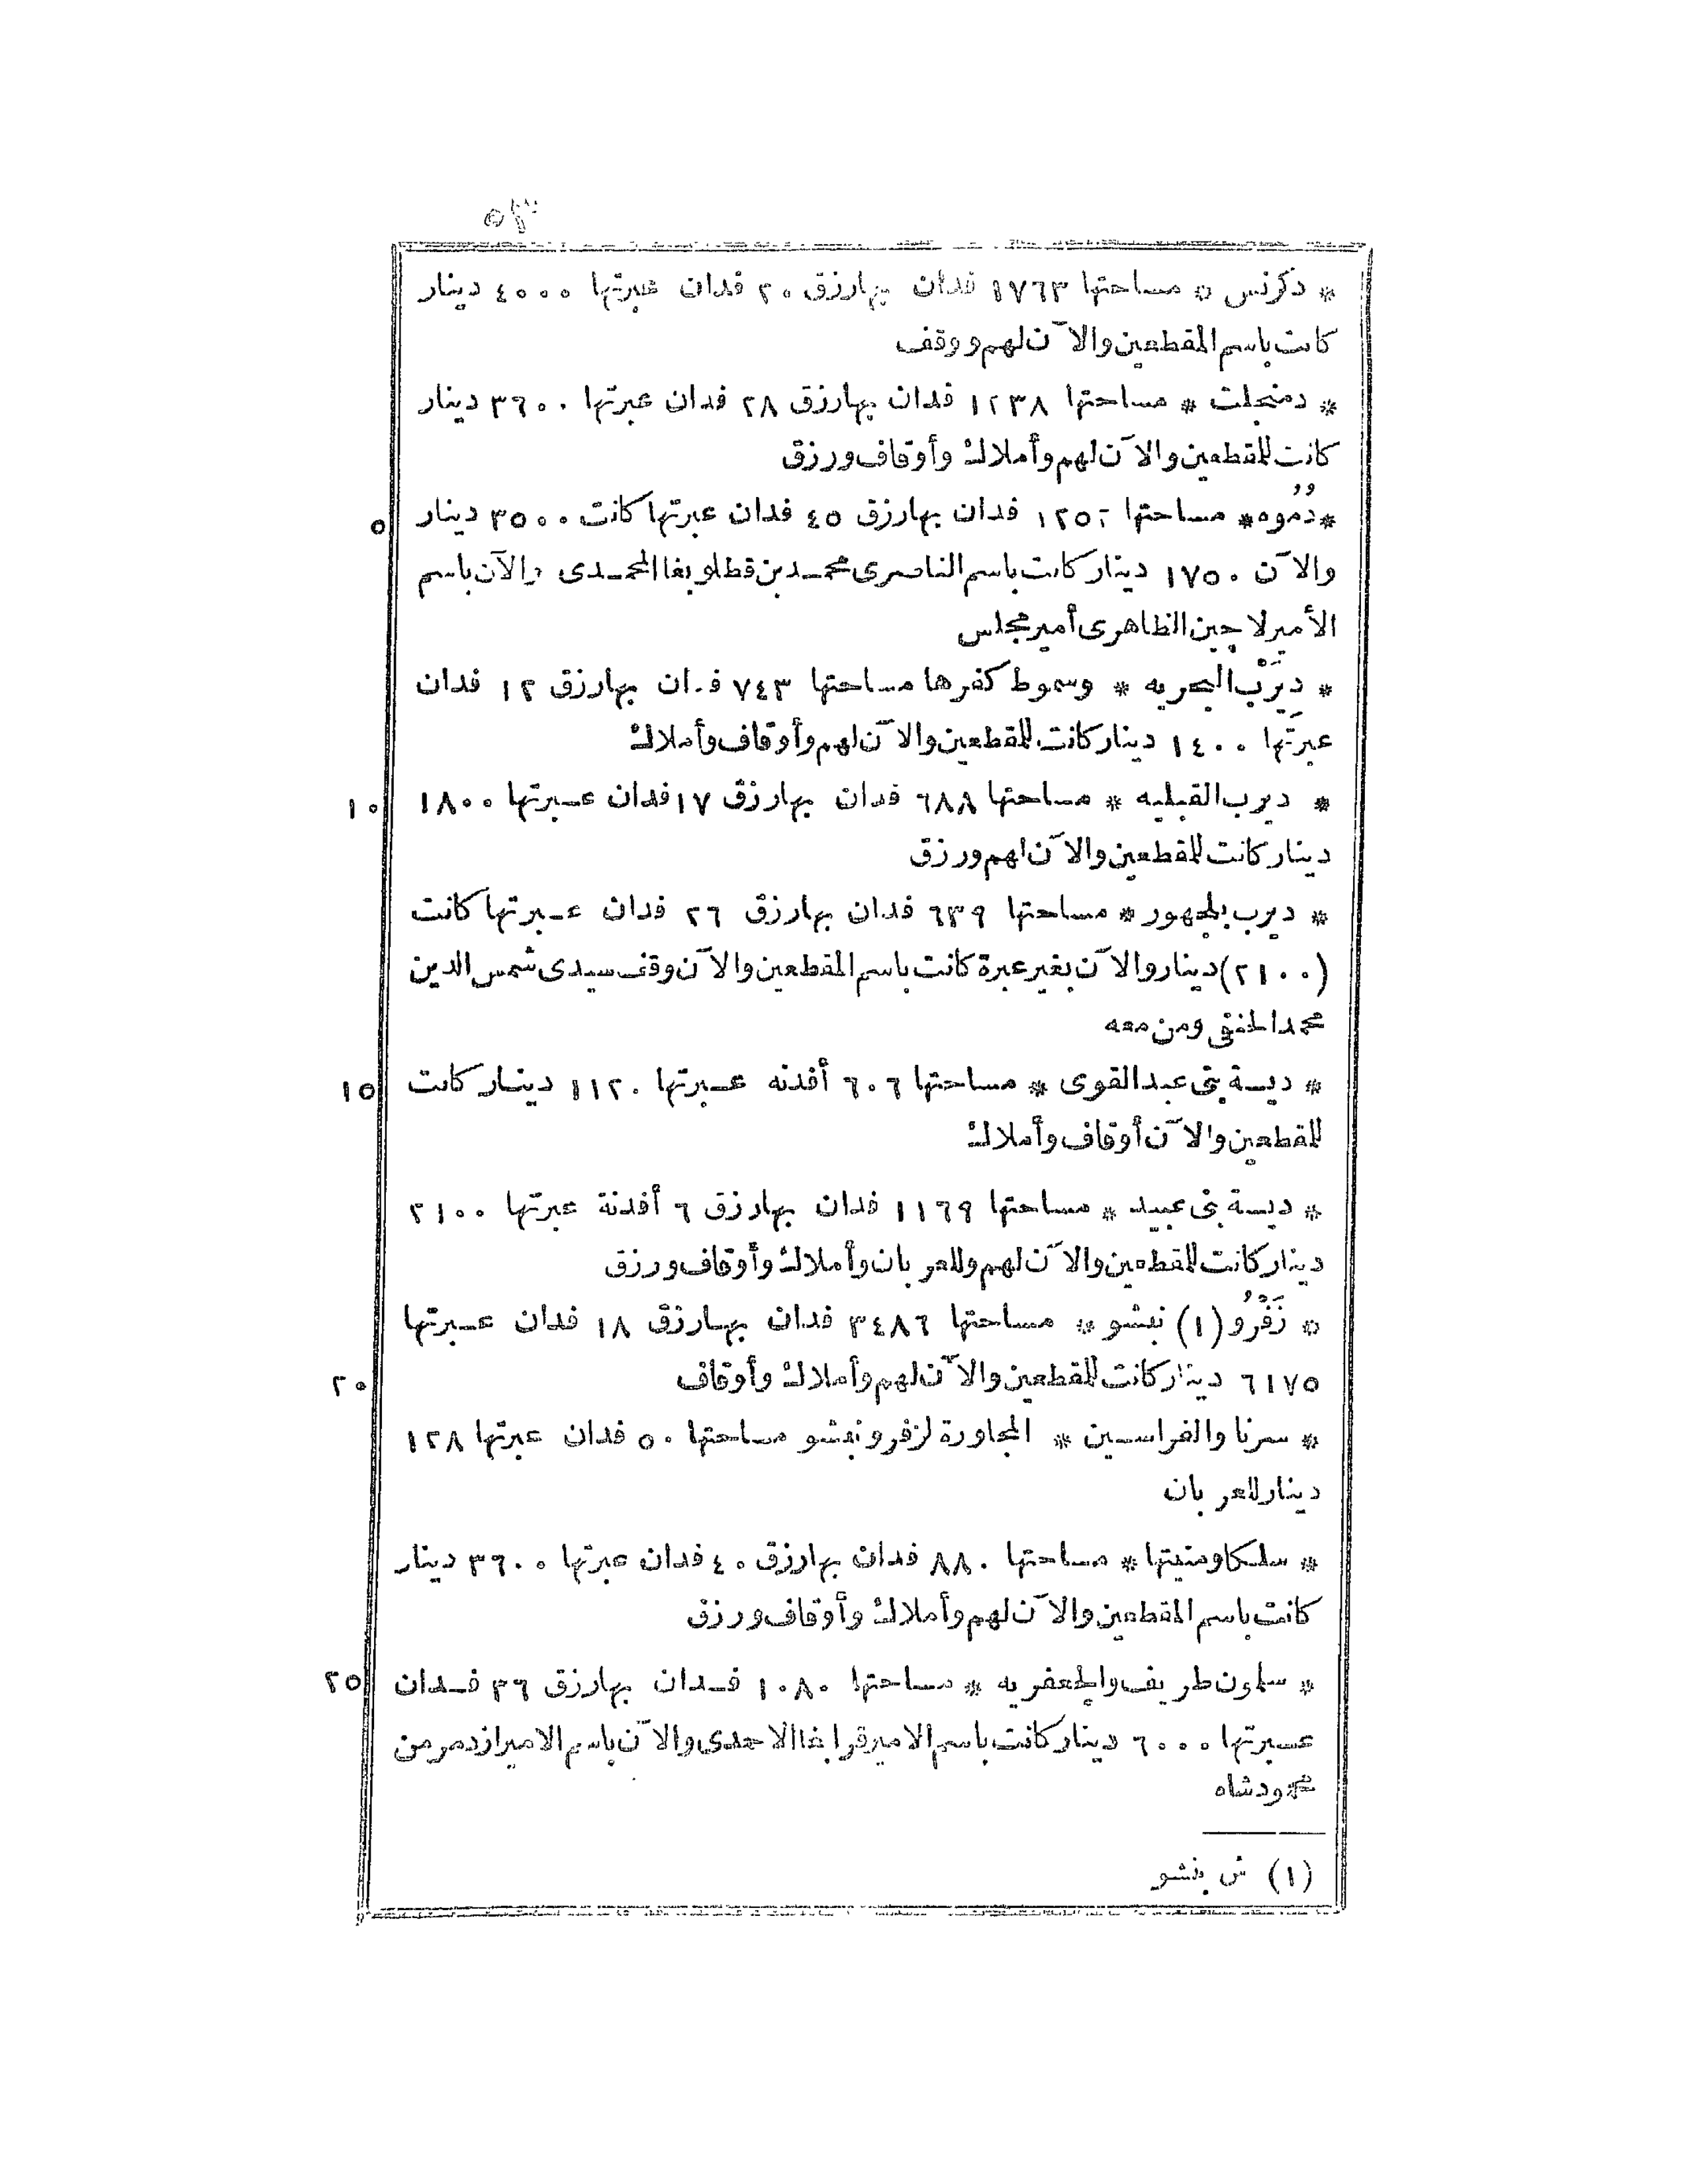 ٥٣
* دكرنس * مساحتها ١٧٦٣ فدان بهارزق ٢٠ فدان عبرتها ٤٠٠٠ دينار
كانت باسم المقطعين والآن لهم ووقف
* دمنجلت * مساحتها ١٢٣٨ فدان بهارزق ٢٨ فدان عبرتها ٣٦٠٠ دينار
كانت للمقطعين والآن لهم وأملاك وأوقاف ورزق
٥ * دُمُوه * مساحتها فدان بهارزق ٤٥ فدان عبرتها كانت ٣٥٠٠ دينار
والآن ١٧٥٠ دينار كانت باسم الناصرى محمد بن قطلو بغا المحمدى والآن باسم
الأمير لاجين الظاهرى أمير مجلس
* ديرب البحريه * وسموط كفرها مساحتها ٧٤٣ فدان بهارزق ١٢ فدان
عبرتها ١٤٠٠ دينار كانت للمقطعين والآن لهم وأوقاف وأملاك
١٠ * ديرب القبليه * مساحتها ٦٨٨ فدان بهارزق ١٧ فدان عبرتها ١٨٠٠
دينار كانت للمقطعين والآن لهم ورزق
* ديرب بلجهور * مساحتها ٦٣٩ فدان بهارزق ٢٦ فدان عبرتها كانت
(٢١٠٠) دينار والآن بغير عبرة كانت باسم المقطعين والآن وقف سيدى شمس الدين
محمد الحنفى ومن معه
١٥ * ديسة بنى عبد القوى * مساحتها ٦٠٦ أفدنه عبرتها ١١٢٠ دينار كانت
للمقطعين والآن أوقاف وأملاك
* ديسة بنى عبيد * مساحتها ١١٦٩ فدان بهارزق ٦ أفدنة عبرتها ٢١٠٠
دينار كانت للمقطعين والآن لهم وللعربان وأملاك وأوقاف ورزق
* زَفْرُو (١) نبشو * مساحتها ٣٤٨٦ فدان بهارزق ١٨ فدان عبرتها
٢٠ ٦١٧٥ دينار كانت للمقطعين والآن لهم وأملاك وأوقاف
* سرنا والفراسين * المجاورة لزفرو نبشو مساحتها ٥٠ فدان عبرتها ١٢٨
دينار للعربان
* سلكا ومنيتها * مساحتها ٨٨٠ فدان بهارزق ٤٠ فدان عبرتها ٣٦٠٠ دينار
كانت باسم المقطعين والآن لهم وأملاك وأوقاف ورزق
٢٥ * سلمون طريف والجعفريه * مساحتها ١٠٨٠ فدان بهارزق ٣٦ فدان
عبرتها ٦٠٠٠ دينار كانت باسم الامير قرابغا الاحمدى والآن باسم الامير ازدمر من
محمودشاه
(١) ش بنشو